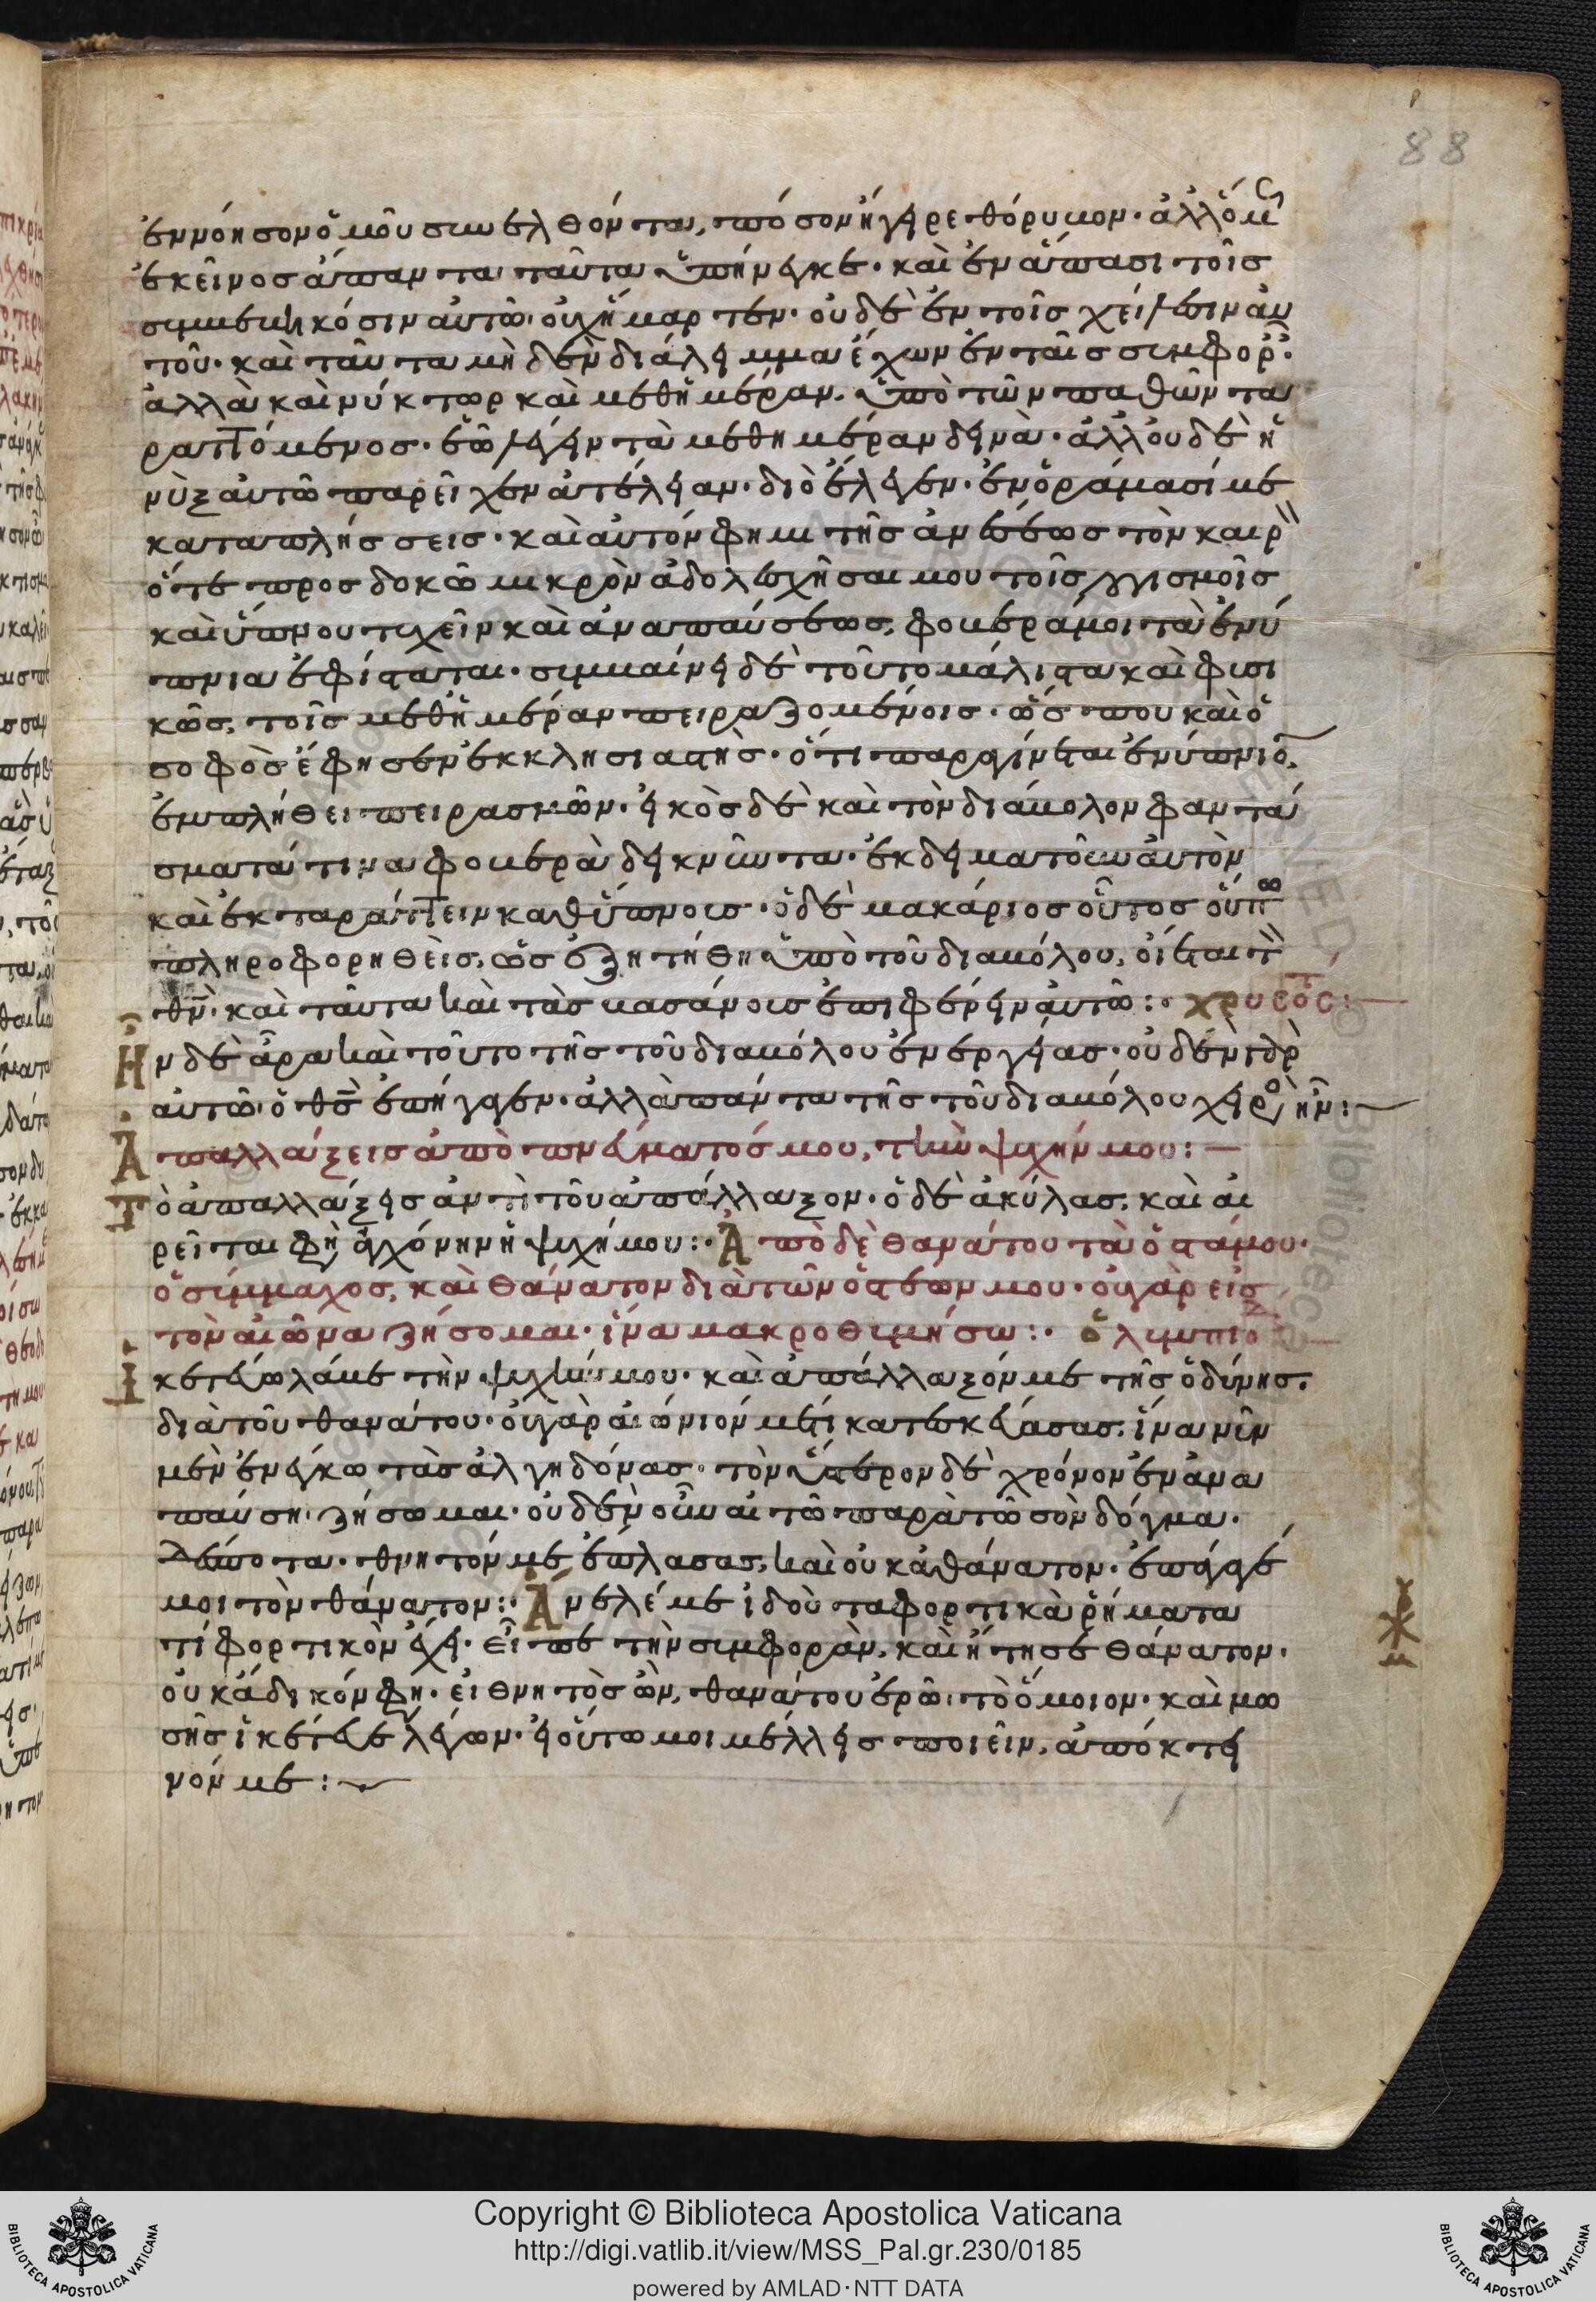 88
ἐννόησον ὁ μῦς εἰσελθόντα, πόσον ἤγειρε θόρυβον· ἀλλόμ
ἐκεῖνος ἅπαντα ταῦτα ὑπήνεγκε· καὶ ἐν ἅπασι τοῖς
συμβεβηκόσιν αὐτῶ, οὐχ ἥμαρτεν· οὐδὲ ἐν τοῖς χείλεσιν αὐ
τοῦ· καὶ ταῦτα μηδὲν διάλειμμα ἔχων ἐν ταῖς συμφορ
ἀλλὰ καὶ νύκτωρ καὶ μεθημέραν, ὑπὸ τῶν παθῶν τα
ραττόμενος· ἐῶ λέγειν τὰ μεθημέραν δεινὰ· ἀλλ' οὐδὲ ἡ
νὺξ αὐτῶ παρεῖχεν ἀτέλειαν· διὸ ἔλεγεν· ἐν ὁράμασί με
καταπλήσσεις· καὶ αὐτόν φημι τῆς ἀνέσεως τὸν καιρ
ὅτε προσδοκῶ μικρὸν ἀδολεσχῆσαι μου τοῖς λογισμοῖς
καὶ ὕπνου τυχεῖν καὶ ἀναπαύσεως, φοβερά μοι τὰ ἐνύ
πνια ἐφίσταται· συμβαίνει δὲ τοῦτο μάλιστα καὶ φυσι
κῶς, τοῖς μεθημέραν πειραζομένοις· ὥς που καὶ ὁ
σοφὸς ἔφησεν ἐκκλησιαστὴς· ὅτι παραγίνεται ἐνύπνιο
ἐν πλήθει πειρασμῶν· εἰκὸς δὲ καὶ τὸν διάβολον φαντά
σματά τινα φοβερὰ δεικνῦντα· ἐκδειματοῦν αὐτὸν
καὶ ἐκταράττειν καθ' ὕπνους· ὁ δὲ μακάριος οὗτος οὔπ
πληροφορηθεὶς, ὡς ἐζητήθη ὑπὸ τοῦ διαβόλου, οἴεται τ
θν· καὶ ταῦτα καὶ τὰς βασάνους ἐπιφέρειν αὐτῶ:· χρυσοστ:
Ἦν δὲ ἄρα καὶ τοῦτο τῆς τοῦ διαβόλου ἐνεργείας· οὐδὲν γὰρ
αὐτῶ ὁ θς ἐπήγαγεν· ἀλλὰ πάντα τῆς τοῦ διαβόλου χειρὸς ἦν:
Ἀπαλλάξεις ἀπὸ πνεύματός μου, τὴν ψυχήν μου:
Τὸ ἀπαλλάξεις ἀντὶ τοῦ ἀπάλλαξον· ὁ δὲ ἀκύλας, καὶ αἱ
ρεῖται φη ἀγχόνην ἡ ψυχή μου:· Ἀπὸ δὲ θανάτου τὰ ὀστᾶ μου·
ὁ σύμμαχος, καὶ θάνατον διὰ τῶν ὀστέων μου· οὐ γὰρ εἰς
τὸν αἰῶνα ζήσομαι· ἵνα μακροθυμήσω:· ὀλυμπιο
Ἱκετεύω λάβε τὴν ψυχήν μου· καὶ ἀπάλλαξόν με τῆς ὀδύνης·
διὰ τοῦ θανάτου· οὐ γὰρ αἰώνιόν με κατεσκεύασας, ἵνα νῦν
μὲν ἐνέγκω τὰς ἀλγηδόνας· τὸν ὕστερον δὲ χρόνον ἐν ἀνα
παύσει ζήσωμαι· οὐδὲν οὖν αἰτῶ παρὰ τὸ σὸν δόγμα·
δέσποτα· θνητόν με ἔπλασας, καὶ οὐκ ἀθάνατον· ἐπάγαγέ
μοι τὸν θάνατον:· Ἀνβλέμε ἰδοὺ τὰ φορτικὰ ῥήματα
τί φορτικὸν ἔχει· εἶπε τὴν συμφορὰν, καὶ ἤτησε θάνατον·
οὐκ ἄδικόν φη· εἰ θνητὸς ὢν, θανάτου ἐρῶ, τὸ ὅμοιον· καὶ μω
σῆς ἱκέτευε λέγων· εἰ οὕτω μοι μέλλεις ποιεῖν, ἀπόκτει
νόν με:
Copyright © Biblioteca Apostolica Vaticana
http://digi.vatlib.it/view/MSS_Pal.gr.230/0185
powered by AMLAD·NTT DATA